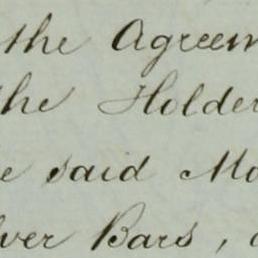 the Agreem
the Holder
e said Mo
lver Bars,